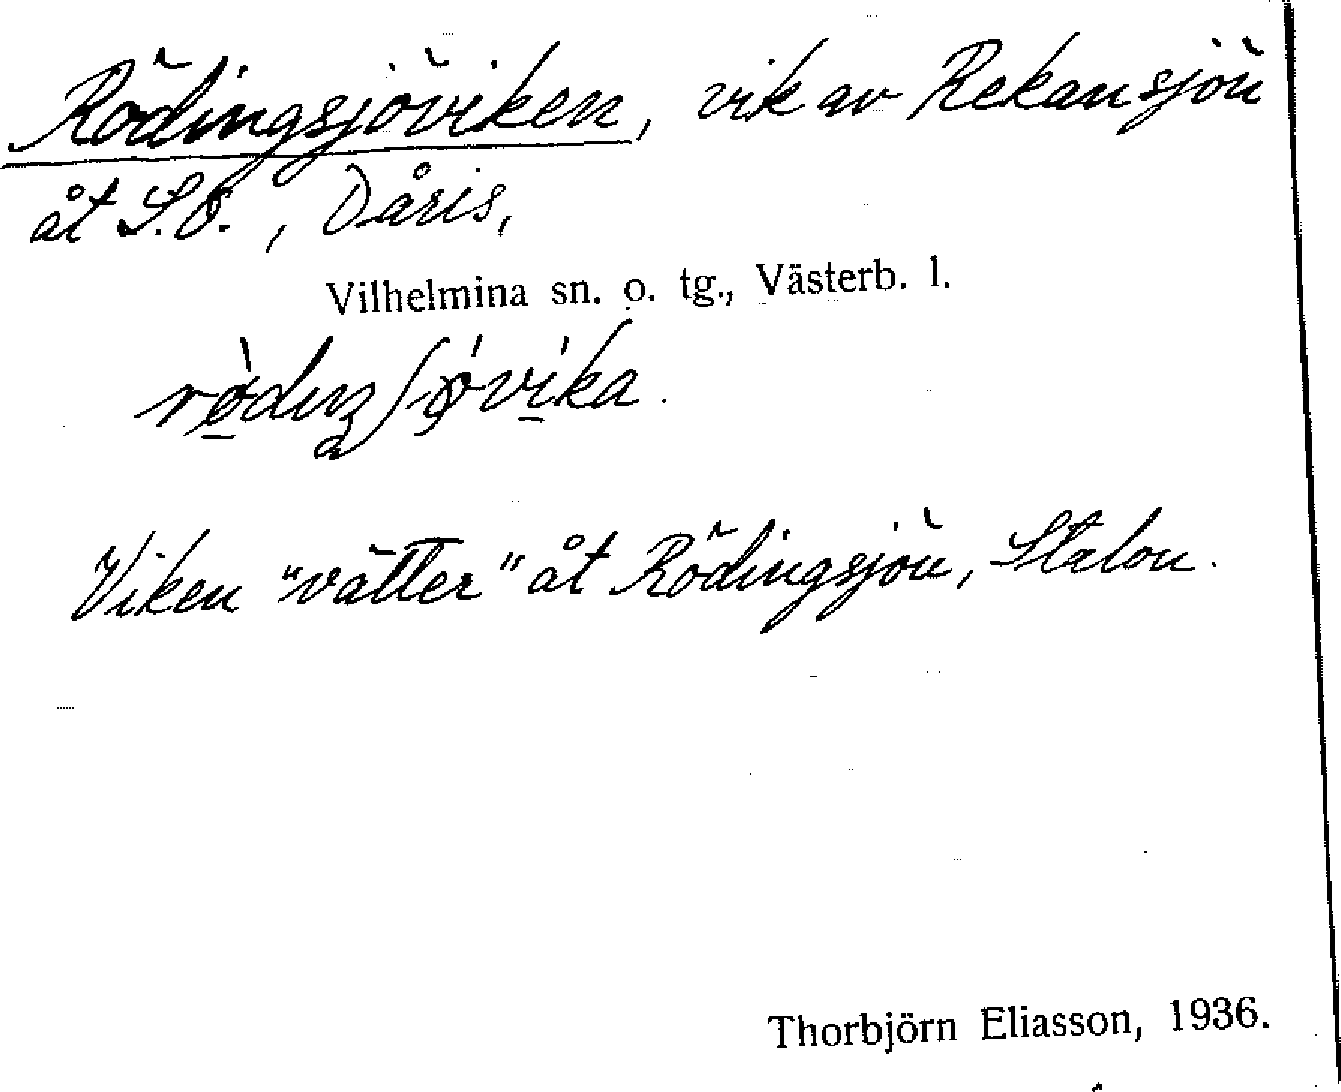 Rödingsjöviken, vik av Rekansjön
åt S.O., Dåris,
Vilhelmina sn. o. tg., Västerb. l.
Viken "vätter" åt Rödingsjön, Stalon.
Thorbjörn Eliasson, 1936.